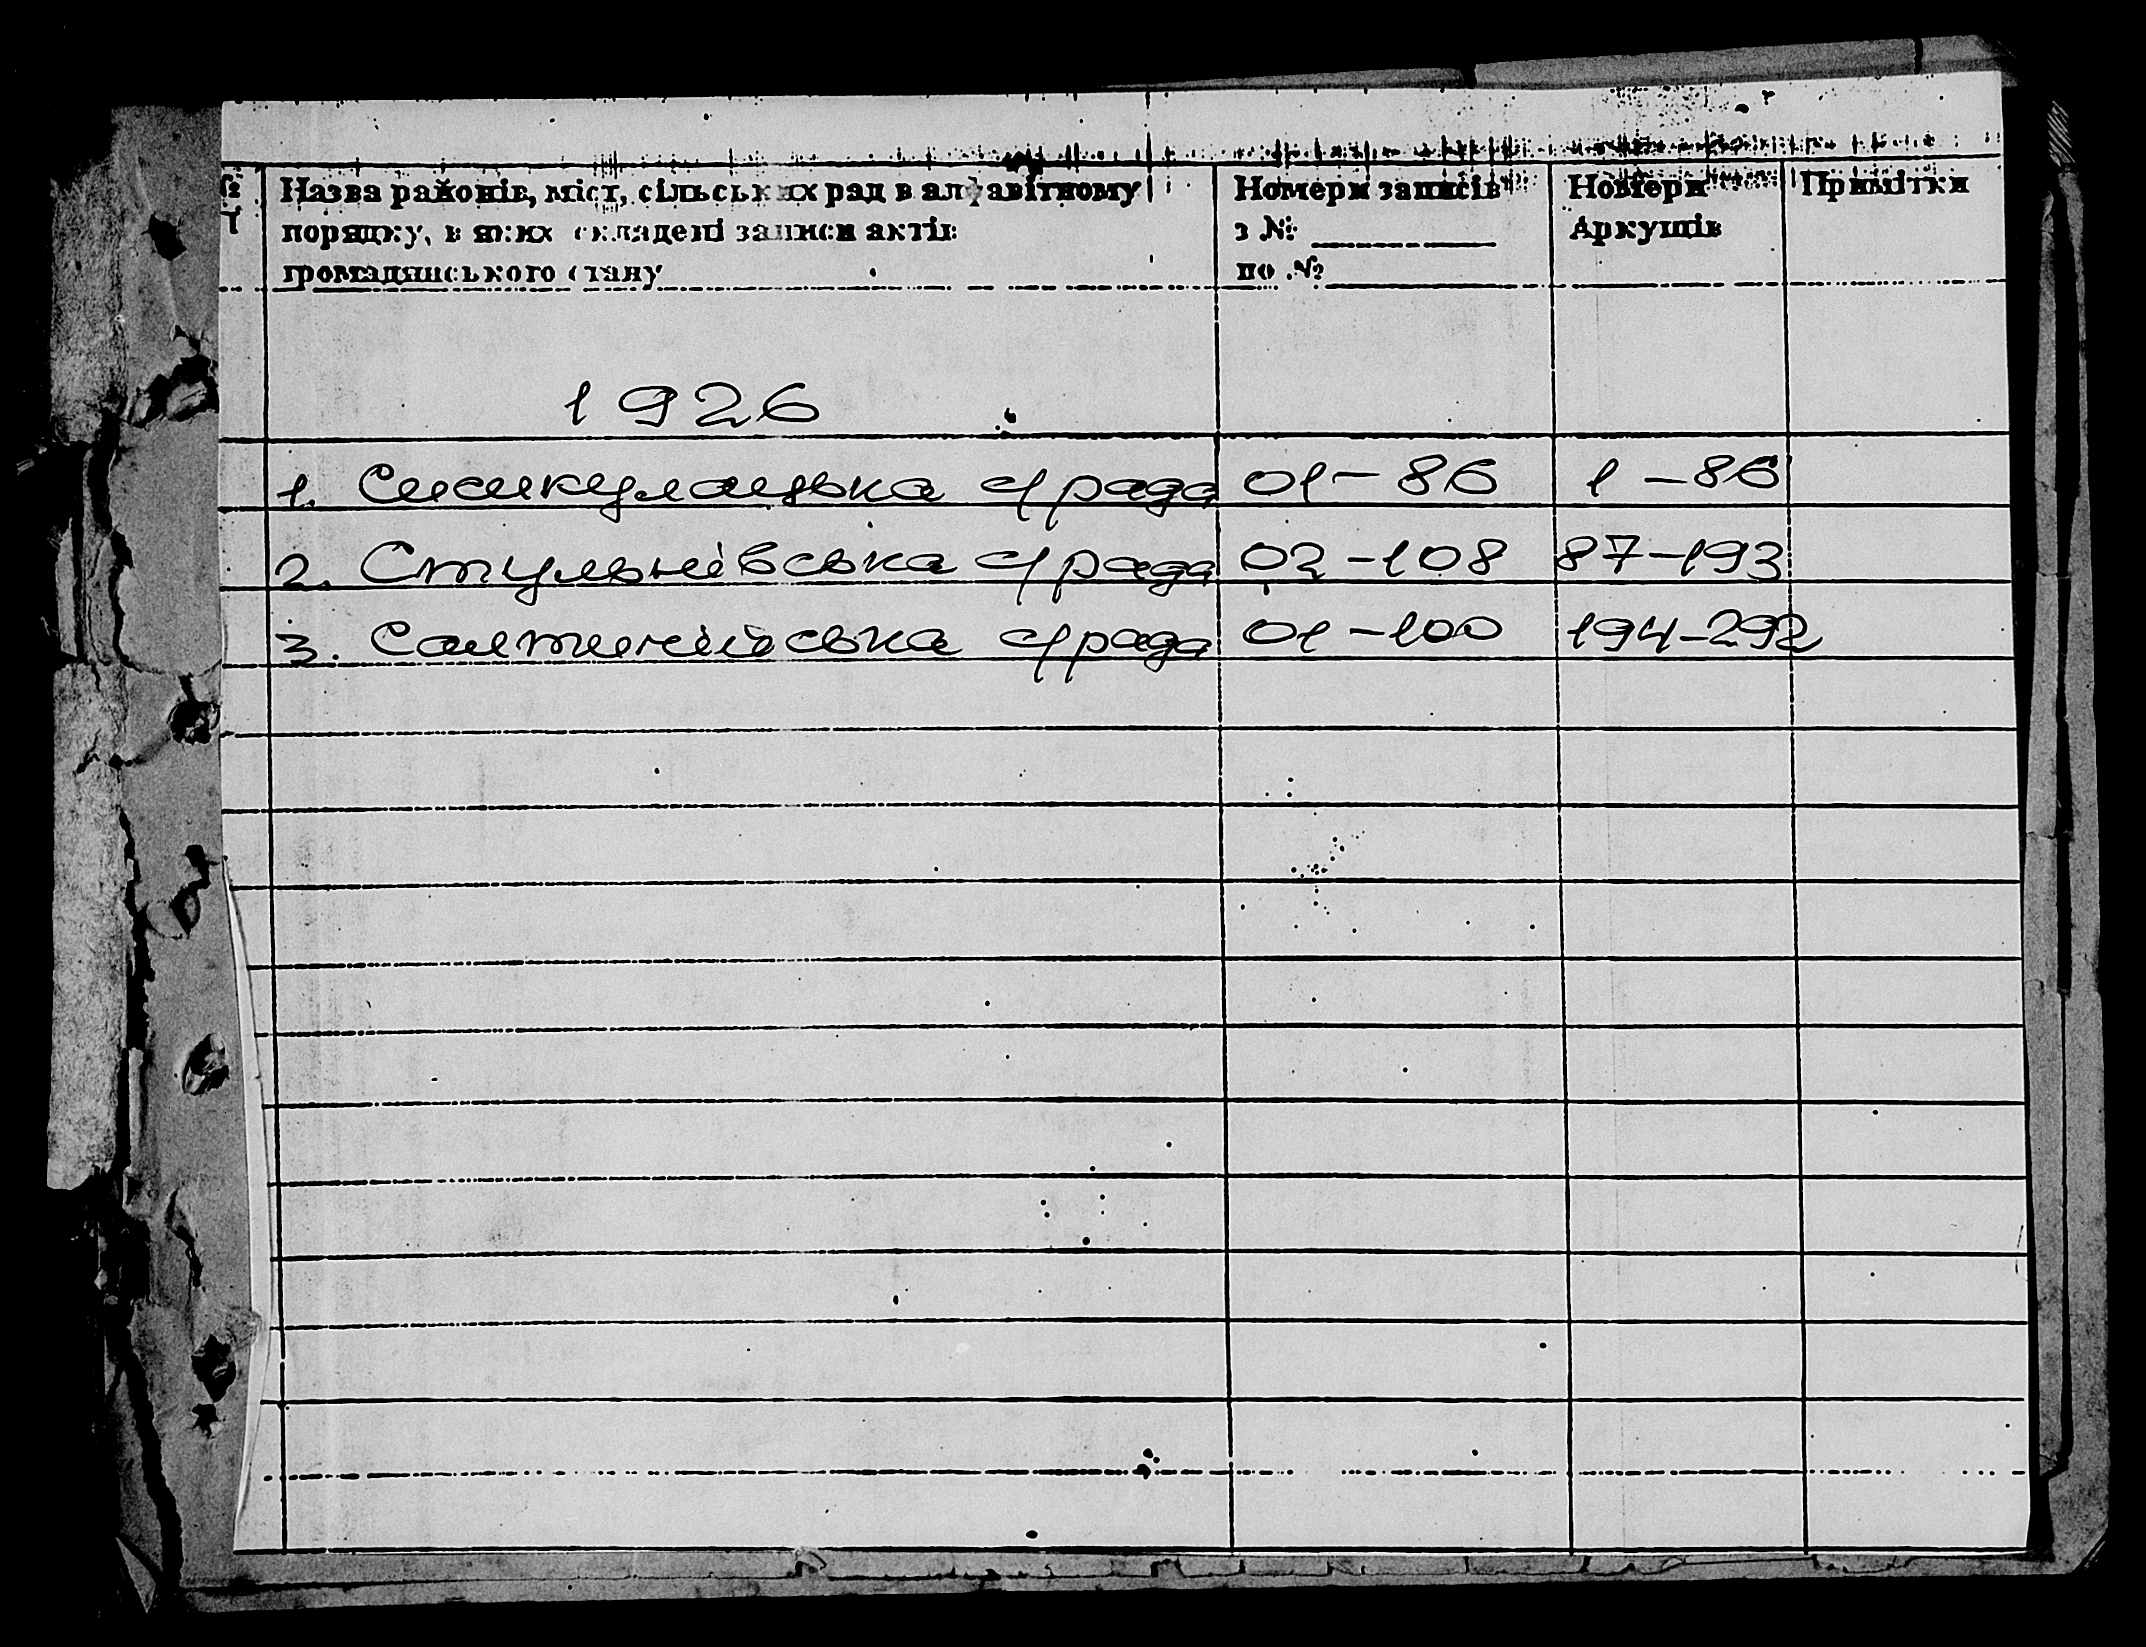 № Назва районів, міст, сільських рад в алфавітному Номери записів Номери Примітки
порядку, в яких складені записи актів з № Аркушів
громадянського стану по №
1926
1. с/рада 01-86 1-86
2. Стульнівська с/рада 02-108 87-193
3. с/рада 01-100 194-292